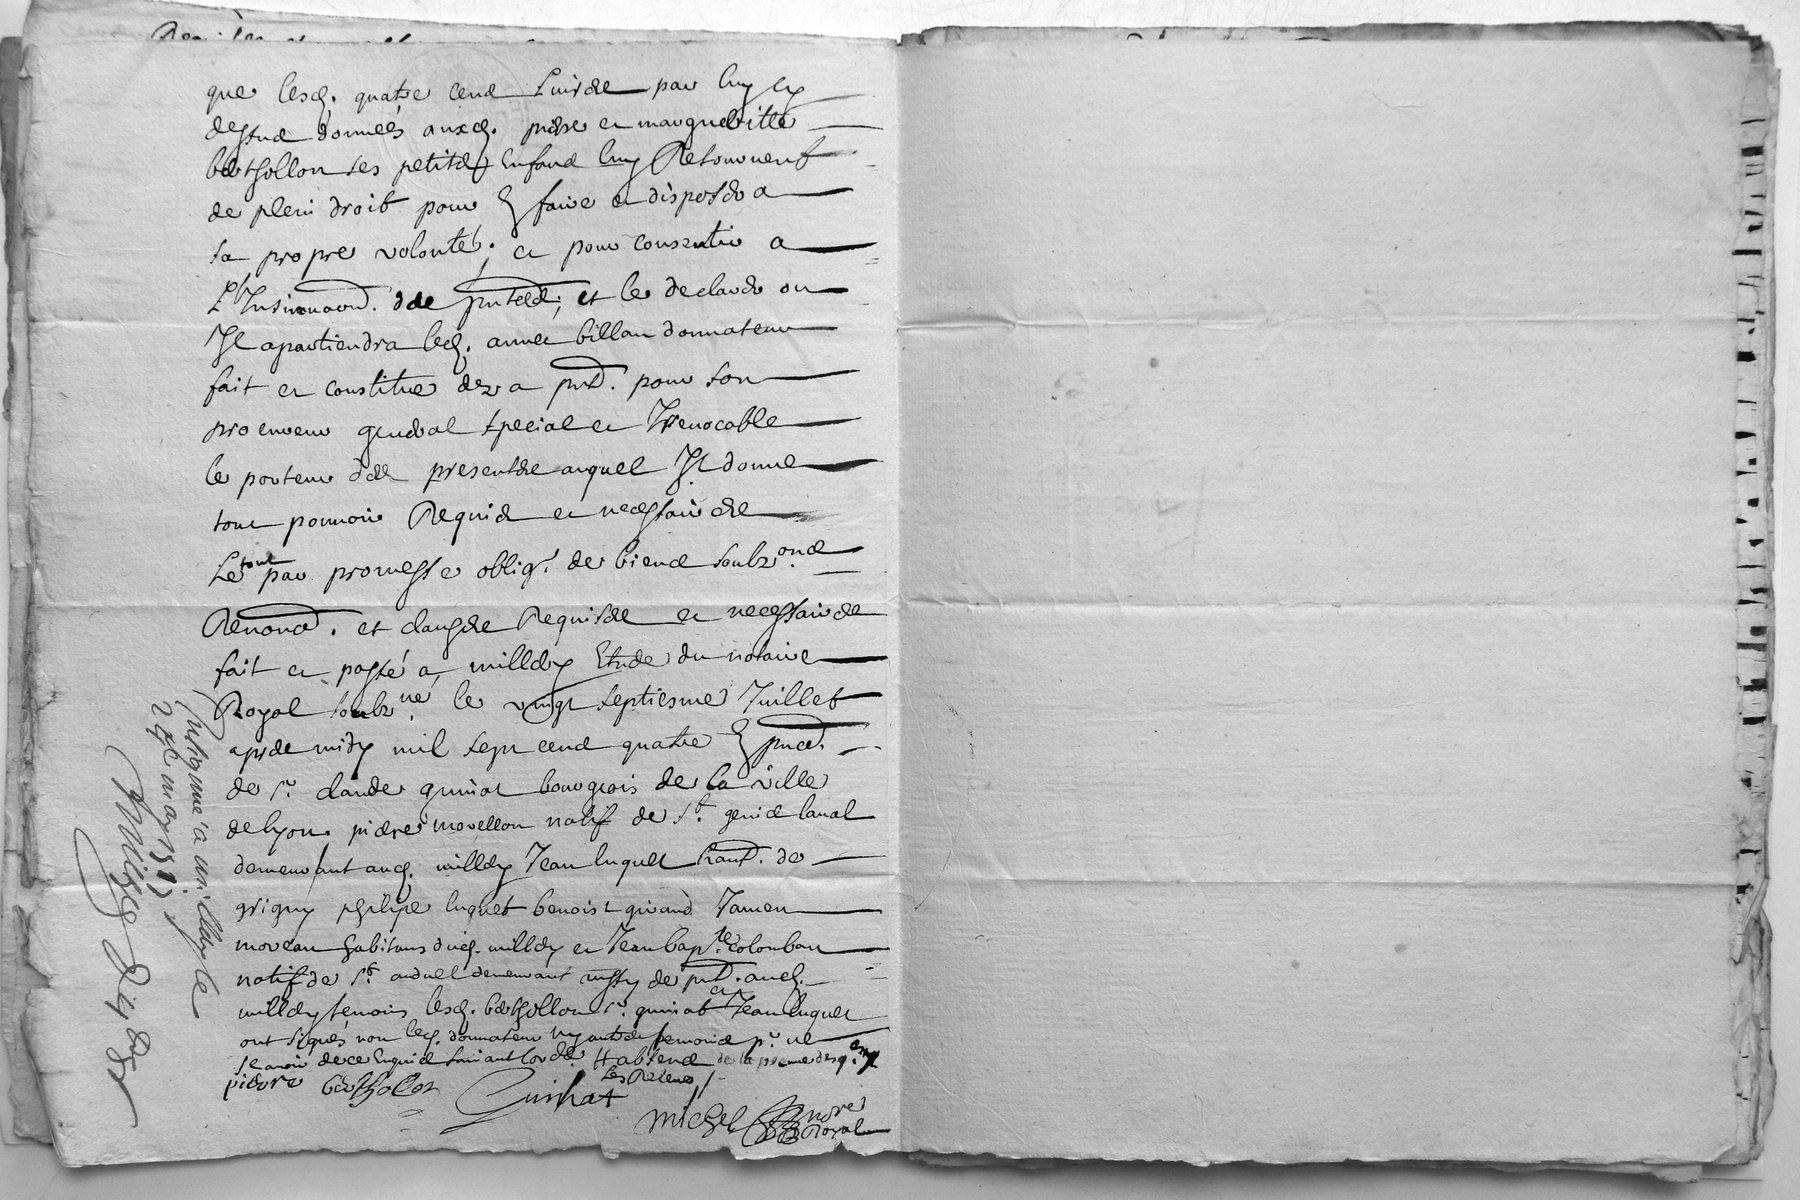 que lesd. quatre cend livres par luy cy
dessus données auxd. pierre et margueritte
berthollon ses petits Enfans luy Retournent
de plein droit pour En faire et disposer a
sa propre volonté; et pour consentir a
L'Insinuaon. des pntes; et les declarer ou
Il apartiendra led. annet billan donnateur
fait et constitue dez a pnt. pour son
procureur general special et Irrevocable
le porteur des presentes auquel Il donne
tout pouvoir Requis et necessaires
Le tout par promesse oblig. de biens soubz.ons
Renond. et clauses Requises et necessaires
fait et passé a millery Etude du notaire
Royal soubz.né le vingt septiesme Juillet
apres midy mil sept cens quatre En pnce.
de Sr. claude guinat bourgeois de la ville
de lyon pierre morellon natif de St. genis laval
demeurant aud. millery Jean luquet hant. de
grigny philipe luquet benoist girand
moreau habitans dud. millery et Jean bapte colomban
natif de St. andeel demeurant de pnt. aud.
millery temoins lesd. berthollon Sr. guinat et Jean luquet
ont signés non led. donnateur ny autres temoins pr. ne
scavoir de ce Enquis suivant lord. de la
les
pierre bertholon Guinat
Michel nore Royal
a millery le
27e may